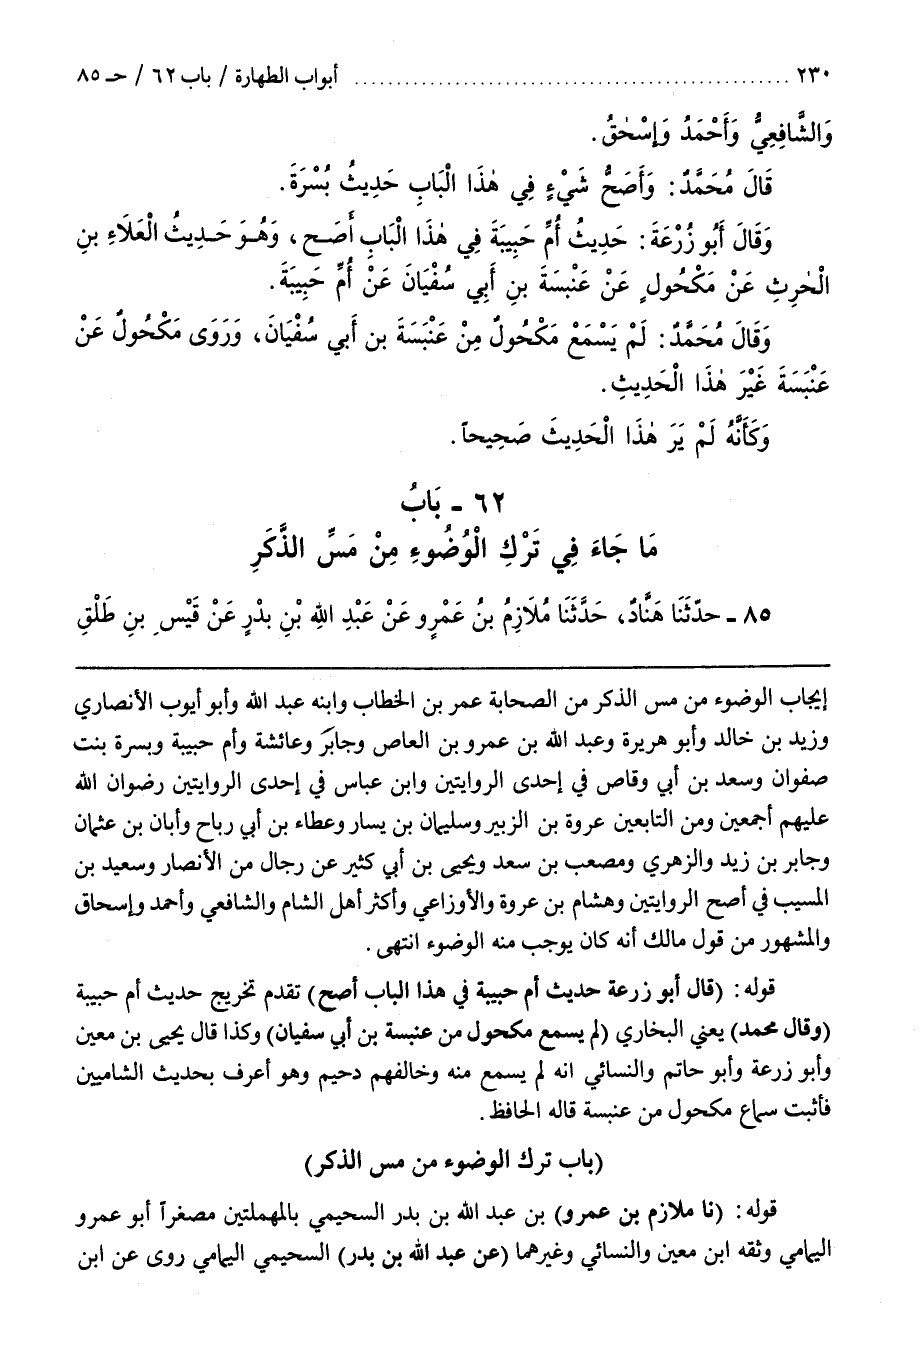 ٢٣٠ ........................................ أبواب الطهارة / باب ٦٢ / حـ ٨٥
وَالشَّافِعِيُّ وَأَحْمَدُ وَإِسْحٰقُ.
قَالَ مُحَمَّدٌ: وَأَصَحُّ شَيْءٍ فِي هٰذَا الْبَابِ حَدِيثُ بُسْرَةَ.
وَقَالَ أَبُو زُرْعَةَ: حَدِيثُ أُمِّ حَبِيبَةَ فِي هٰذَا الْبَابِ أَصَح، وَهُوَ حَدِيثُ الْعَلَاءِ بنِ
الْحٰرِثِ عَنْ مَكْحُولٍ عَنْ عَنْبَسَةَ بنِ أَبِي سُفْيَانَ عَنْ أُمِّ حَبِيبَةَ.
وَقَالَ مُحَمَّدٌ: لَمْ يَسْمَعْ مَكْحُولٌ مِنْ عَنْبَسَةَ بن أبي سُفْيَانَ، وَرَوَى مَكْحُولٌ عَنْ
عَنْبَسَةَ غَيْرَ هٰذَا الْحَدِيثِ.
وَكَأَنَّهُ لَمْ يَرَ هٰذَا الْحَدِيثَ صَحِيحاً.
٦٢ - بَابُ
مَا جَاءَ فِي تَرْكِ الْوُضُوءِ مِنْ مَسِّ الذَّكَرِ
٨٥ - حدّثَنَا هَنَّادٌ، حَدَّثَنَا مُلَازِمُ بنُ عَمْرٍو عَنْ عَبْدِ اللهِ بْنِ بدْرٍ عَنْ قَيْسِ بنِ طَلْقِ
إيجاب الوضوء من مس الذكر من الصحابة عمر بن الخطاب وابنه عبد الله وأبو أيوب الأنصاري
وزيد بن خالد وأبو هريرة وعبد الله بن عمرو بن العاص وجابر وعائشة وأم حبيبة وبسرة بنت
صفوان وسعد بن أبي وقاص في إحدى الروايتين وابن عباس في إحدى الروايتين رضوان الله
عليهم أجمعين ومن التابعين عروة بن الزبير وسليمان بن يسار وعطاء بن أبي رباح وأبان بن عثمان
وجابر بن زيد والزهري ومصعب بن سعد ويحيى بن أبي كثير عن رجال من الأنصار وسعيد بن
المسيب في أصح الروايتين وهشام بن عروة والأوزاعي وأكثر أهل الشام والشافعي وأحمد وإسحاق
والمشهور من قول مالك أنه كان يوجب منه الوضوء انتهى.
قوله: (قال أبو زرعة حديث أم حبيبة في هذا الباب أصح) تقدم تخريج حديث أم حبيبة
(وقال محمد) يعني البخاري (لم يسمع مكحول من عنبسة بن أبي سفيان) وكذا قال يحيى بن معين
وأبو زرعة وأبو حاتم والنسائي انه لم يسمع منه وخالفهم دحيم وهو أعرف بحديث الشاميين
فأثبت سماع مكحول من عنبسة قاله الحافظ.
(باب ترك الوضوء من مس الذكر)
قوله: (نا ملازم بن عمرو) بن عبد الله بن بدر السحيمي بالمهملتين مصغراً أبو عمرو
اليمامي وثقه ابن معين والنسائي وغيرهما (عن عبد الله بن بدر) السحيمي اليمامي روى عن ابن